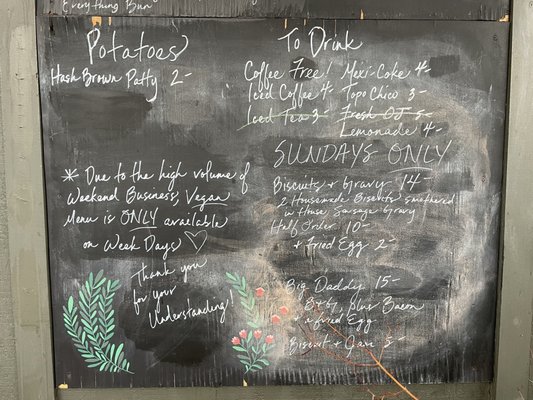 Everything Bun
Potatoes
Hash Brown Patty 2-
* Due to the high volume of
Weekend Business, Vegan
Menu is ONLY available
on Week Days
Thank you
for your
Understanding!
To Drink
Coffee Free! Mexi-Coke 4-
Iced Coffee 4- Topo Chico 3-
Iced Tea 3- Fresh OJ 5-
Lemonade 4-
SUNDAYS ONLY
Biscuits + Gravy 14-
2 Housemade Biscuits smothered
in House Sausage Gravy
Half Order 10-
+ fried Egg 2-
Big Daddy 15-
B+G, plus Bacon
+ fried Egg
Biscuit + Jam 5-